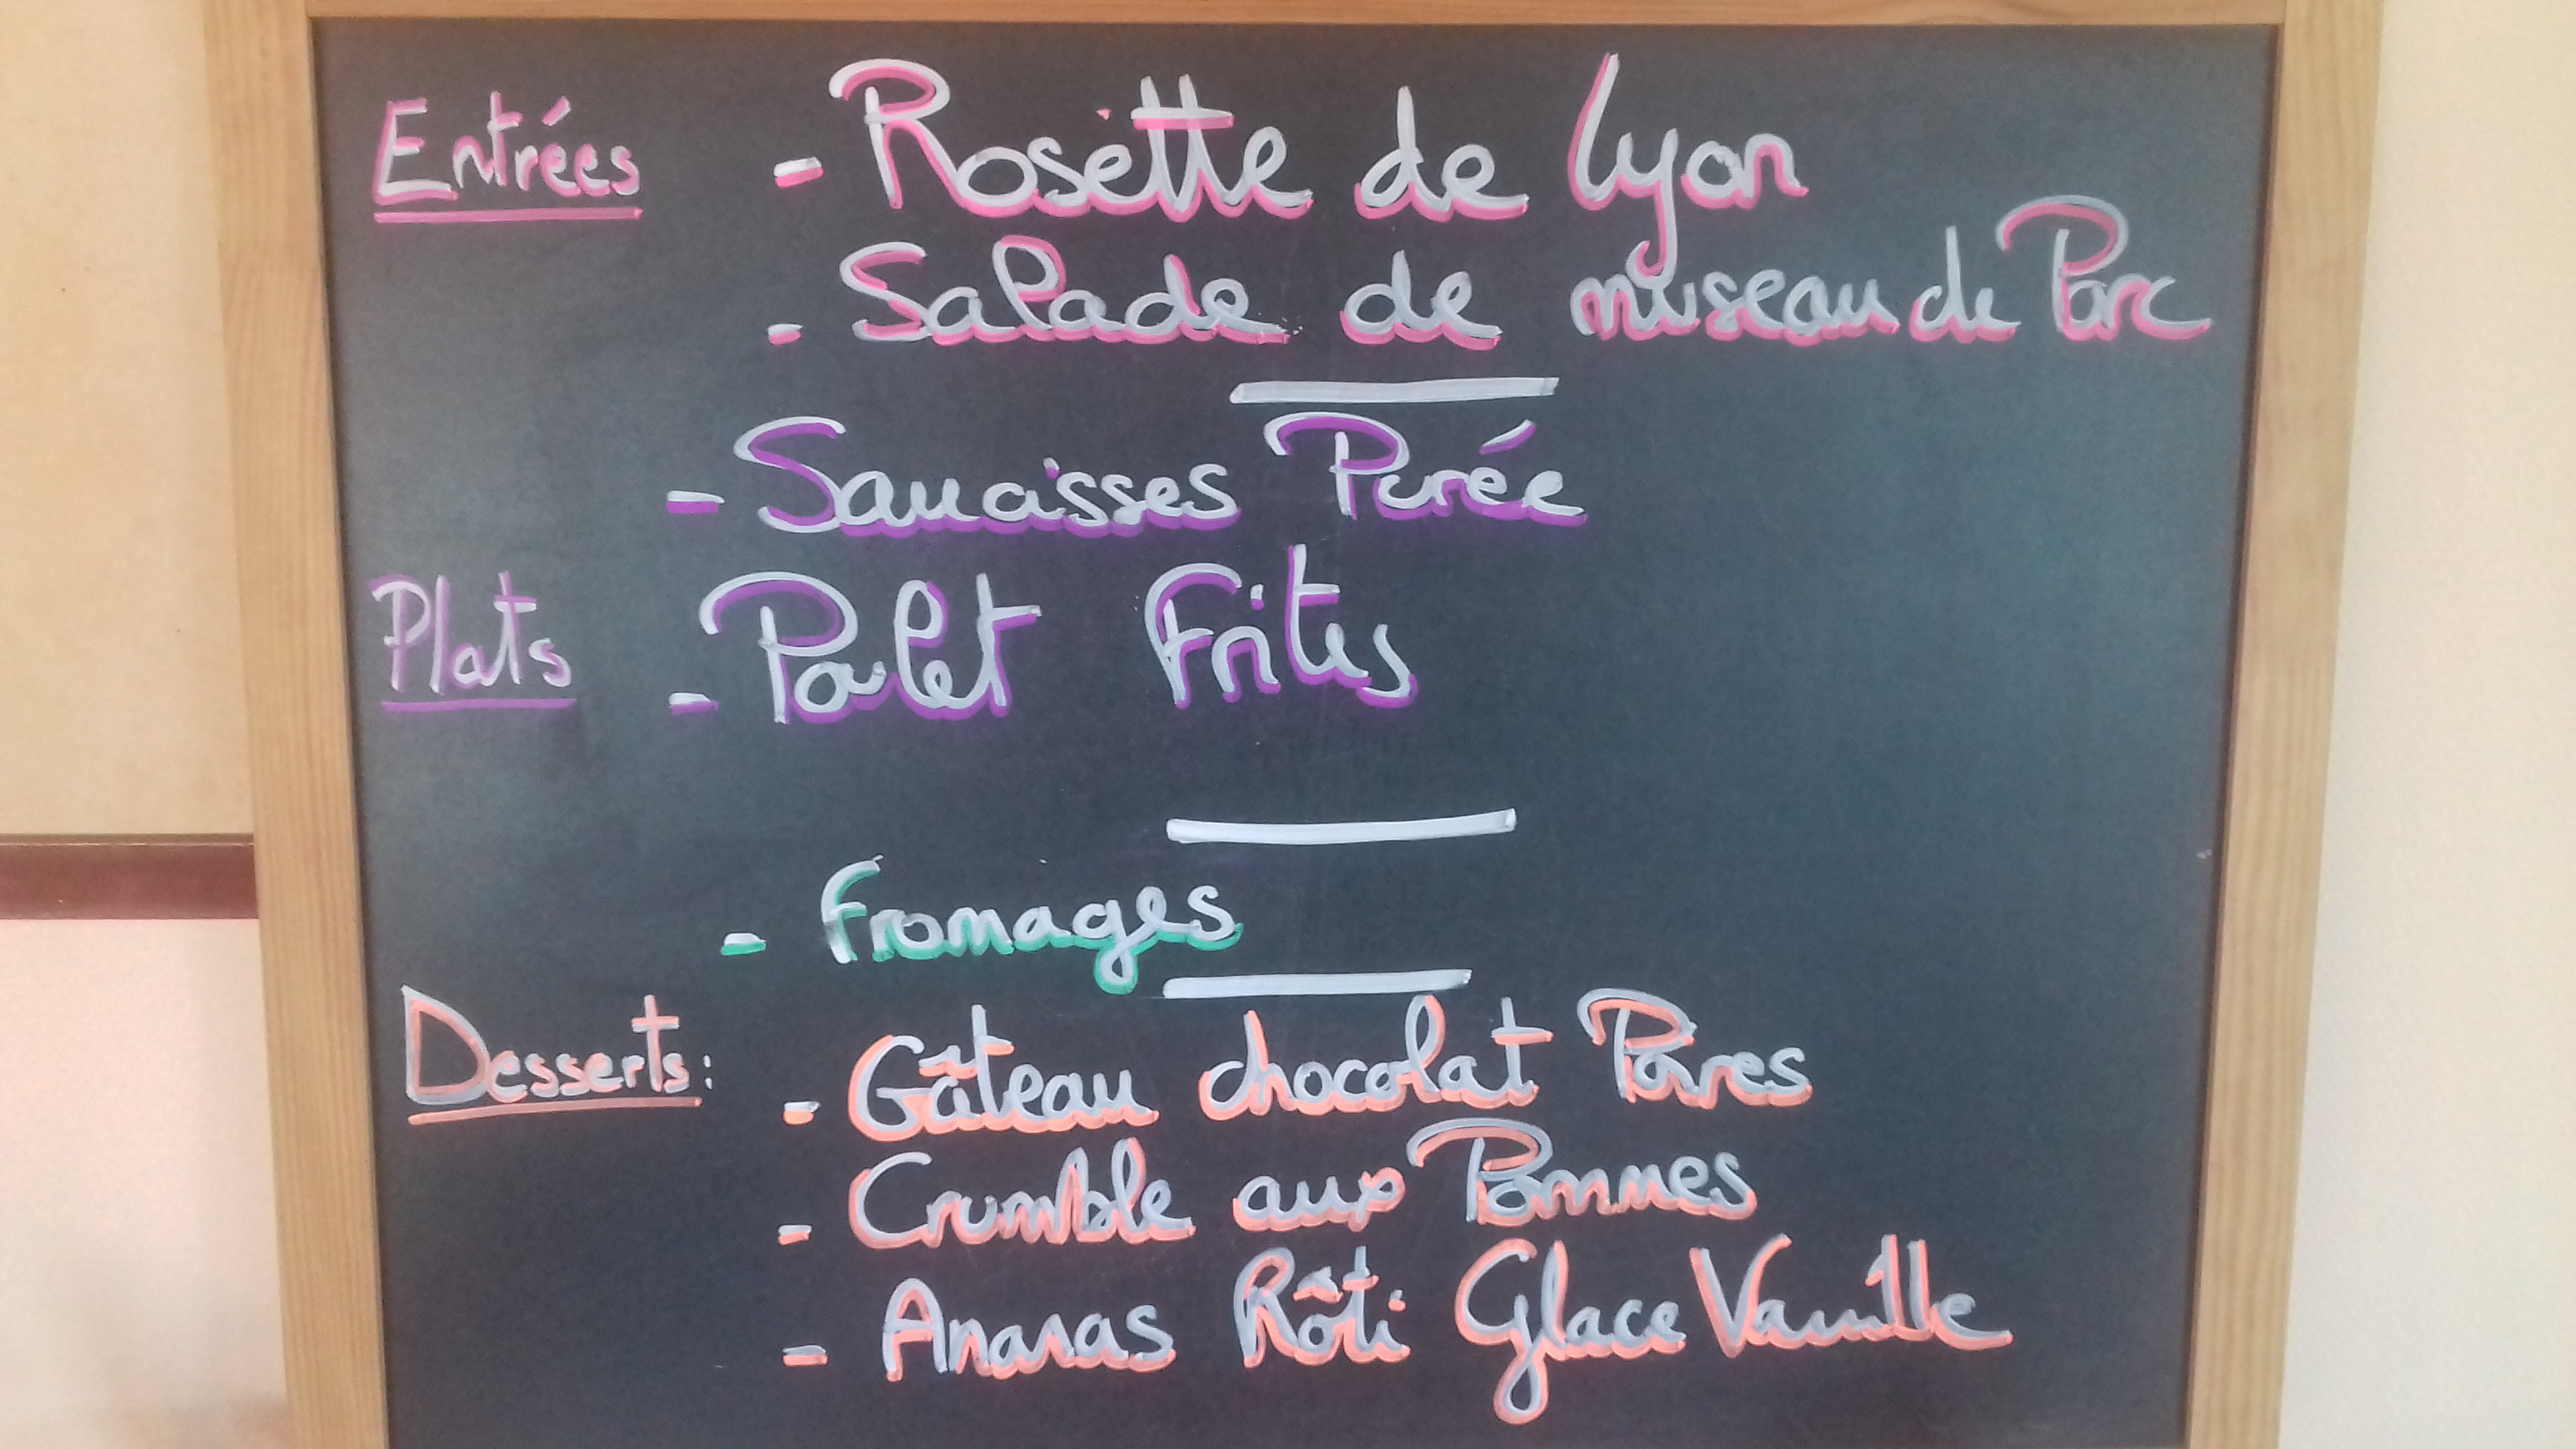 Entrées - Rosette de Lyon
- Salade de museau de Porc
- Saucisses Purée
Plats - Poulet Frites
- Fromages
Desserts: - Gâteau chocolat Poires
- Crumble aux Pommes
- Ananas Rôti Glace Vanille